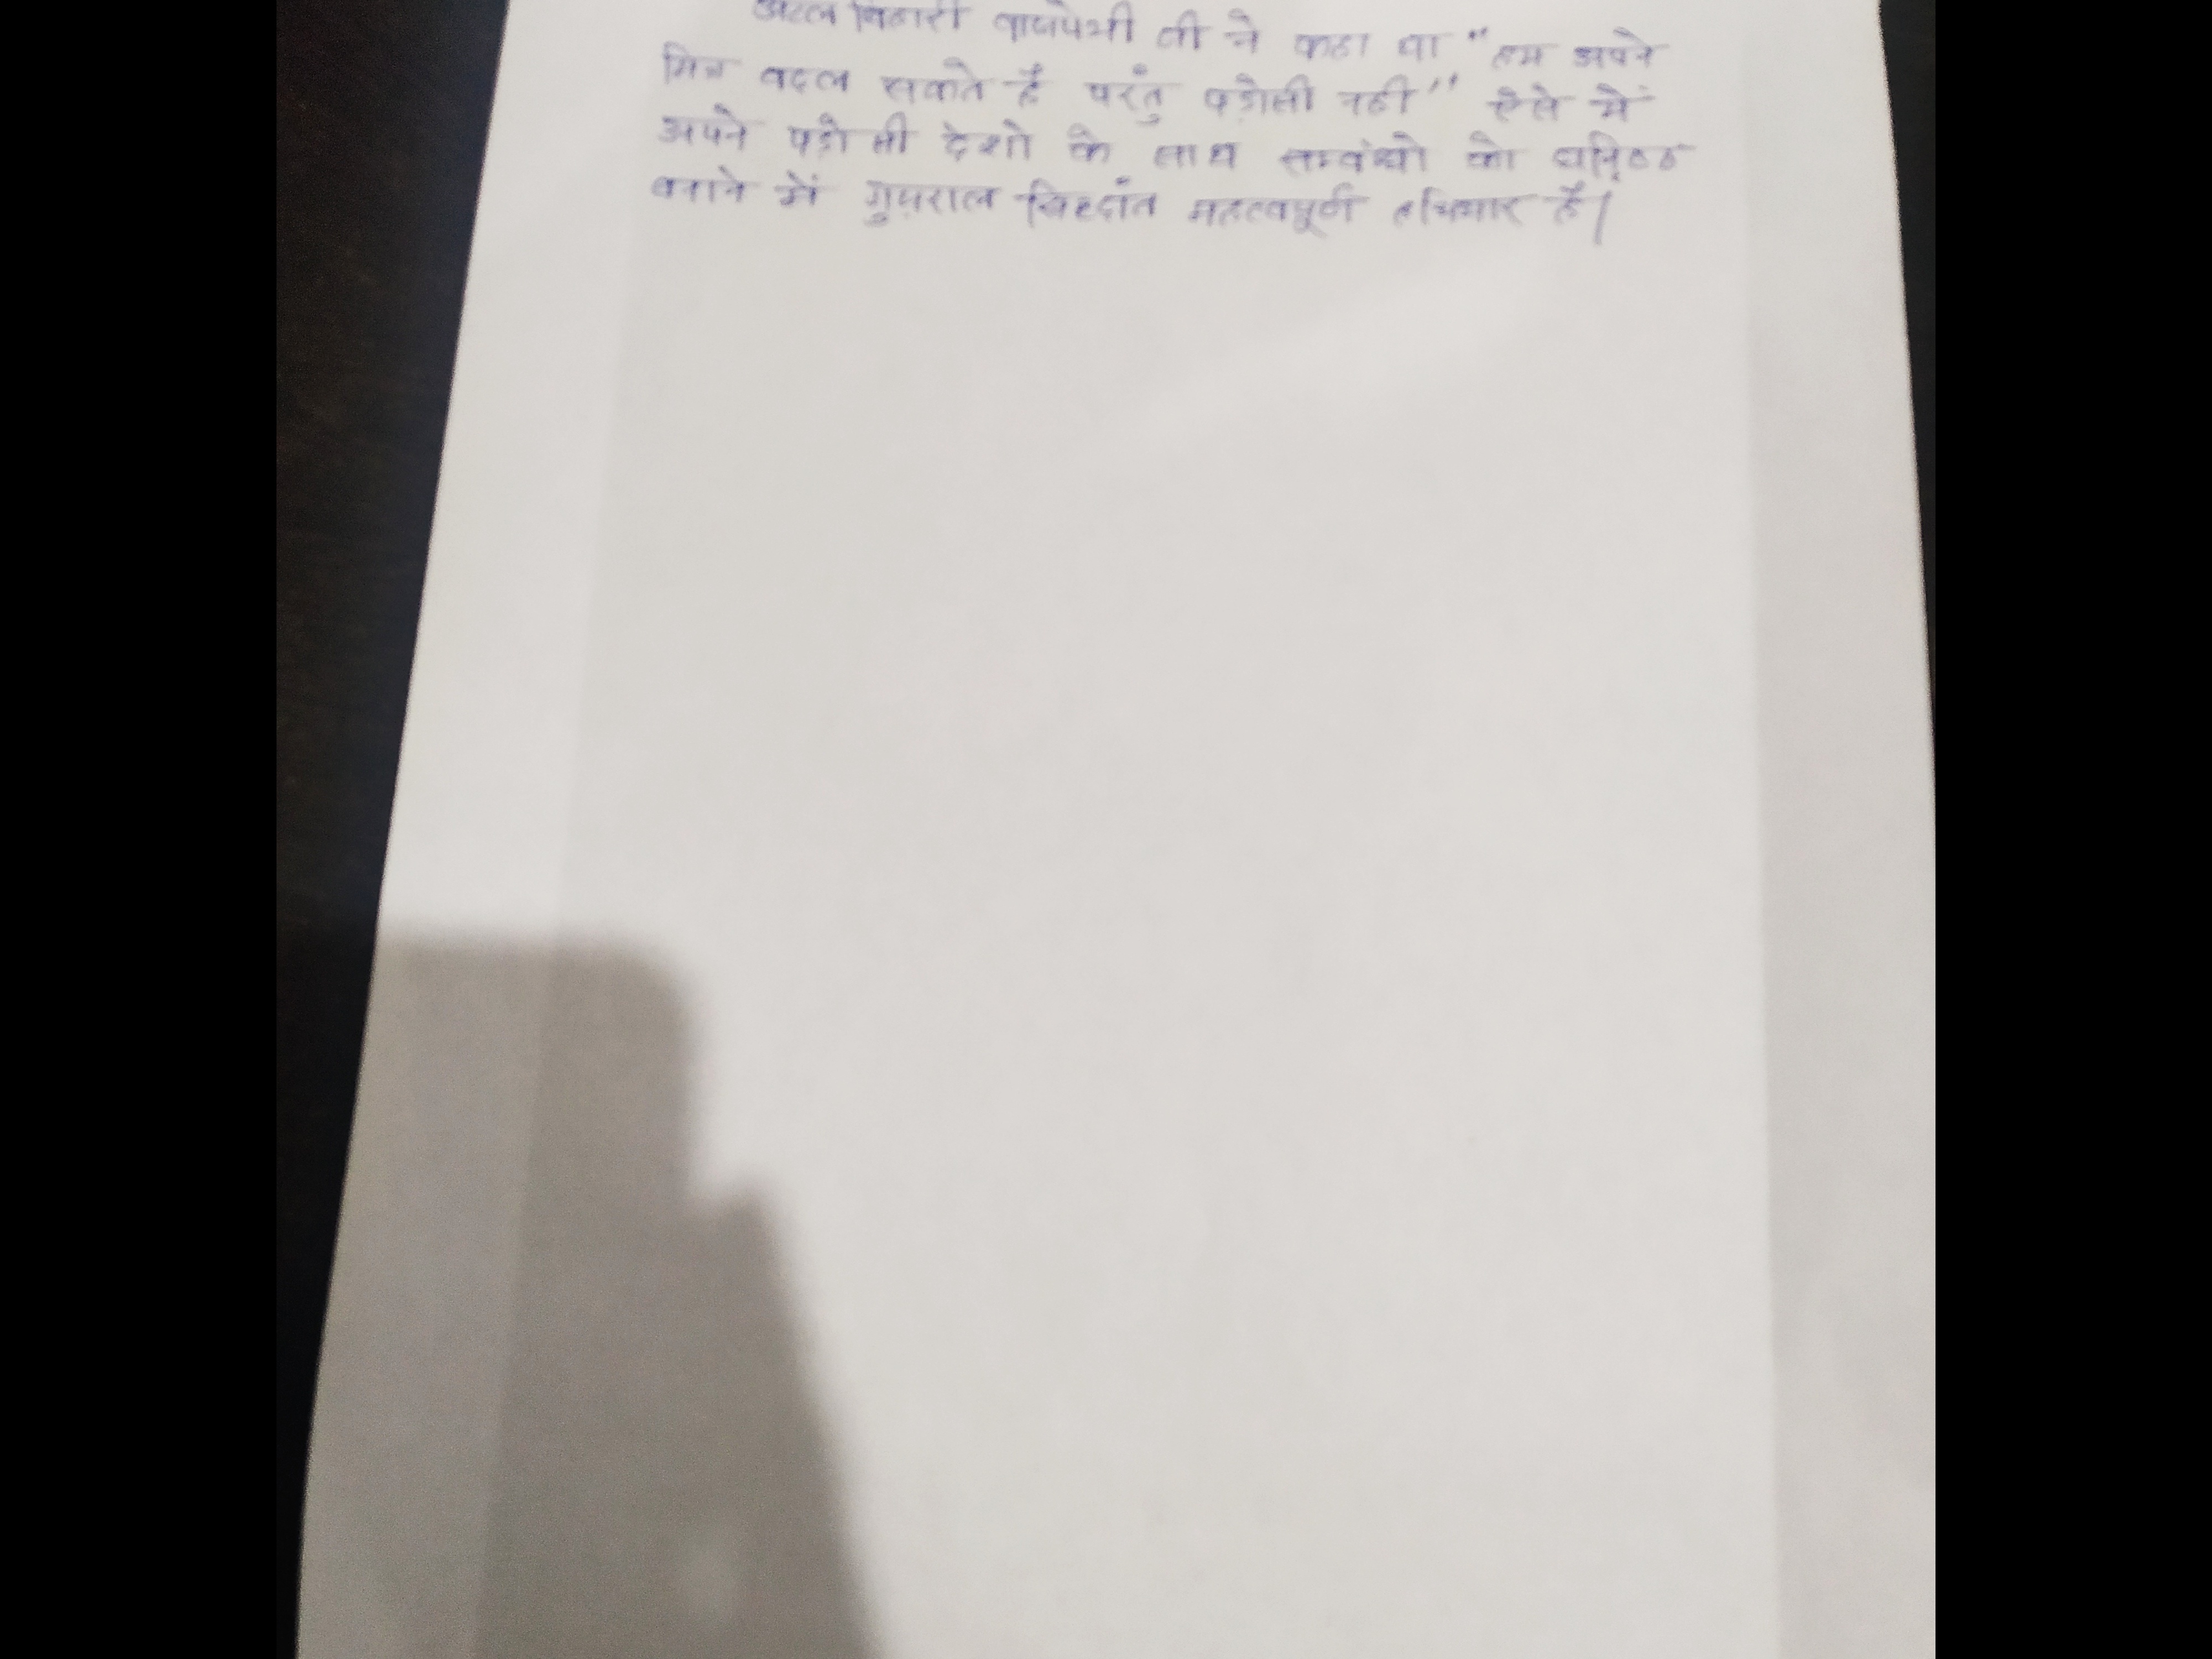 अटल बिहारी वाजपेयी जी ने कहा था "हम अपने
मित्र बदल सकते है परंतु पड़ोसी नही" ऐसे में
अपने पड़ोसी देशो के साथ सम्बंधो को घनिष्ठ
बनाने में गुजराल सिद्दांत महत्वपूर्ण हथियार है।